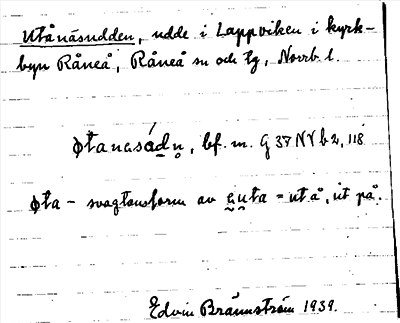 Utånäsudden, udde i Lappviken i kyrk-
byn Råneå, Råneå sn och tg, Norrb. l.
ɸtanasádn̥, bf. m. G 37 NVb2, 118
ɸta - svagtonsform av ṵta = utå, ut på.
Edvin Brännström 1939.